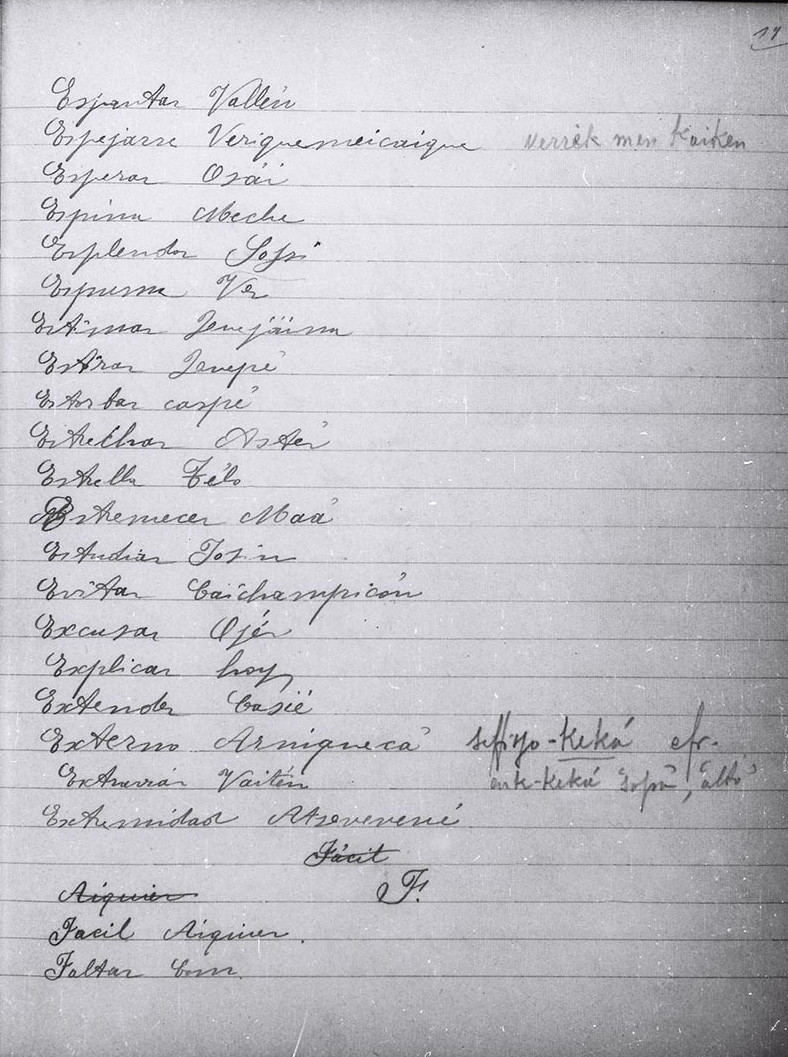 Espantar Vallén
Espejarse Veriquemeicaique verrik men kaiken
Esperar Osái
Espina Meche
Esplendor
Espuma Ver
Estimar
Estirar Jenepé
Estorbar caspé
Estrechar Astér
Estrella Télo
Estremecer Maá
Estudiar Josin
Evitar Caichampicón
Excusar Ojér
Explicar hoy
Extender Casié
Externo Arniquecá -Keká cfr.
Extraviar Vaitén -Keká "alto"
Extremidad Atsevevené
Fácil
Aiquier F.
Facil Aiquier.
Faltar Com.